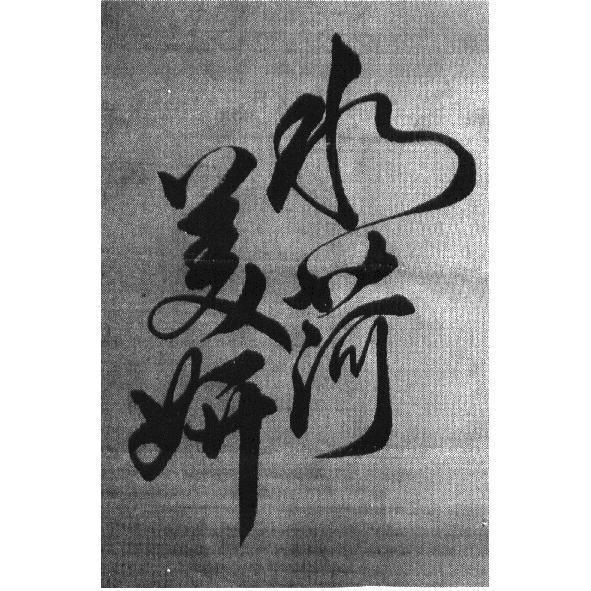 水荷
美妍